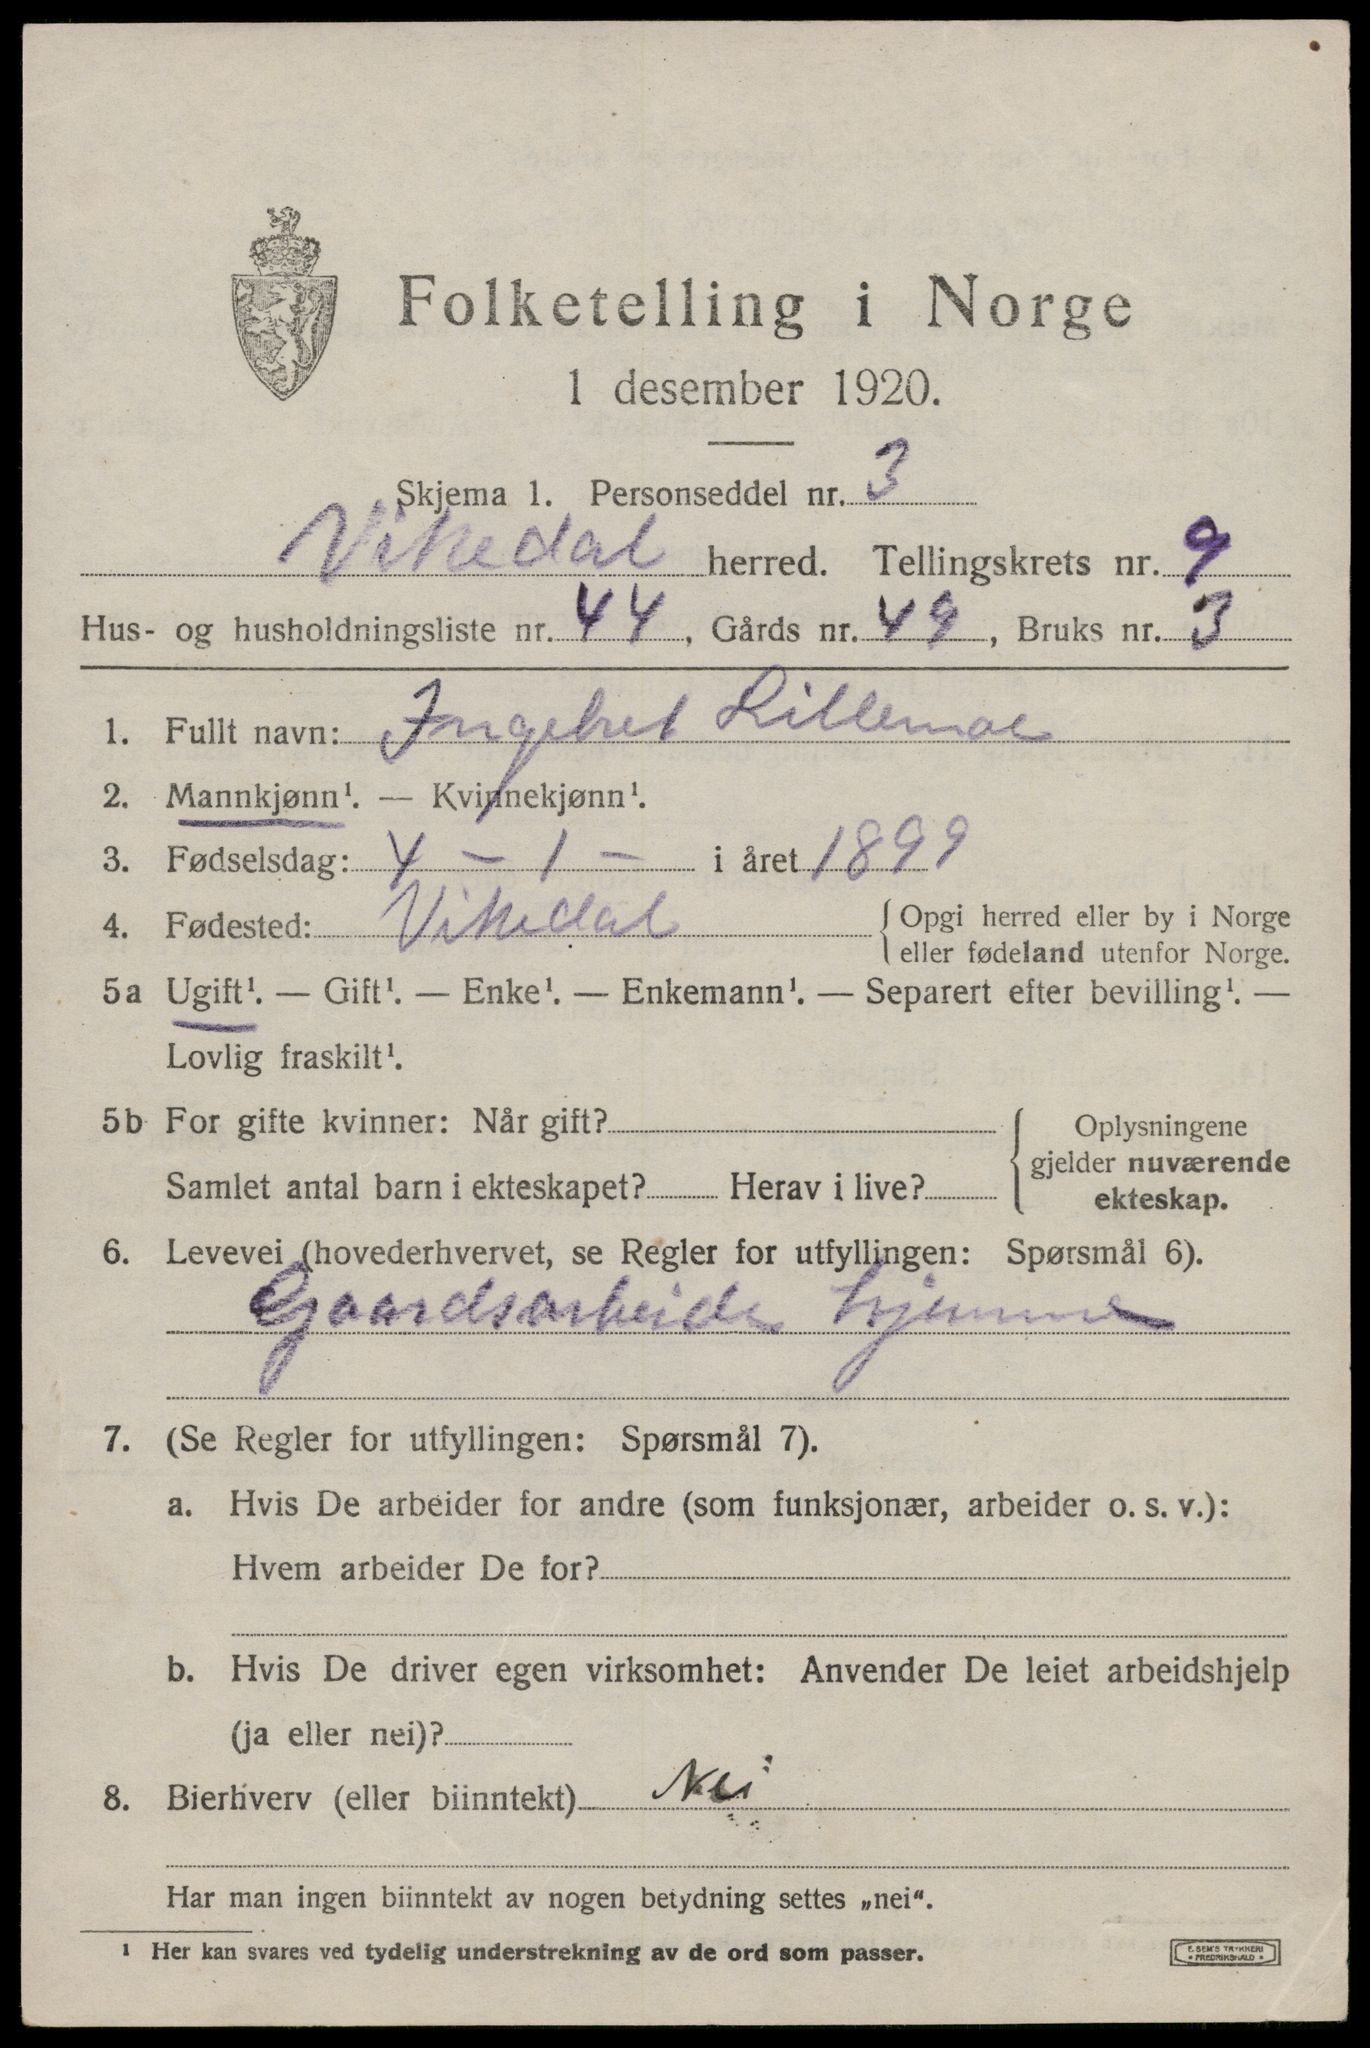 Folketelling i Norge
1 desember 1920.
Skjema 1. Personseddel nr. 3
Vikedal herred. Tellingskrets nr. 9
Hus- og husholdningsliste nr. 44, Gårds nr. 49, Bruks nr. 3
1. Fullt navn: Ingebret Lillemoe
2. Mannkjønn¹. — Kvinnekjønn¹.
3. Fødselsdag: 4 – 1 – i året 1899
4. Fødested: Vikedal { Opgi herred eller by i Norge
eller fødeland utenfor Norge.
5a Ugift¹. — Gift¹. — Enke¹. — Enkemann¹. — Separert efter bevilling¹. —
Lovlig fraskilt¹.
5b For gifte kvinner: Når gift?
Samlet antal barn i ekteskapet? Herav i live?
Oplysningene
gjelder nuværende
ekteskap.
6. Levevei (hovederhvervet, se Regler for utfyllingen: Spørsmål 6).
Gaardsarbeide hjemme
7. (Se Regler for utfyllingen: Spørsmål 7).
a. Hvis De arbeider for andre (som funksjonær, arbeider o. s. v.):
Hvem arbeider De for?
b. Hvis De driver egen virksomhet: Anvender De leiet arbeidshjelp
(ja eller nei)?
8. Bierhverv (eller biinntekt) Nei
Har man ingen biinntekt av nogen betydning settes „nei“.
¹ Her kan svares ved tydelig understrekning av de ord som passer.
E. SEM'S TRYKKERI
* FREDRIKSHALD *